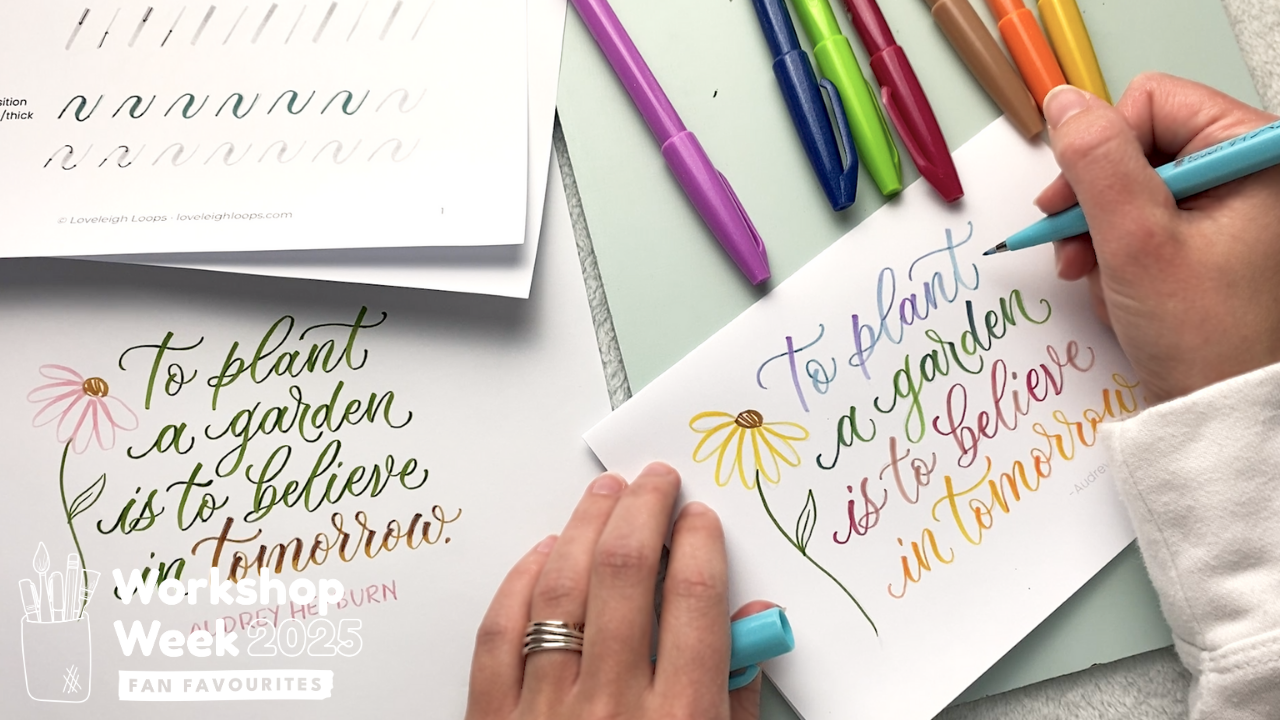 sition
/thick
© Loveleigh Loops · loveleighloops.com
1
To plant
a garden
is to believe
in tomorrow.
AUDREY HEPBURN
To plant
a garden
is to believe
in tomorrow.
-Audrey
Workshop
Week 2025
FAN FAVOURITES